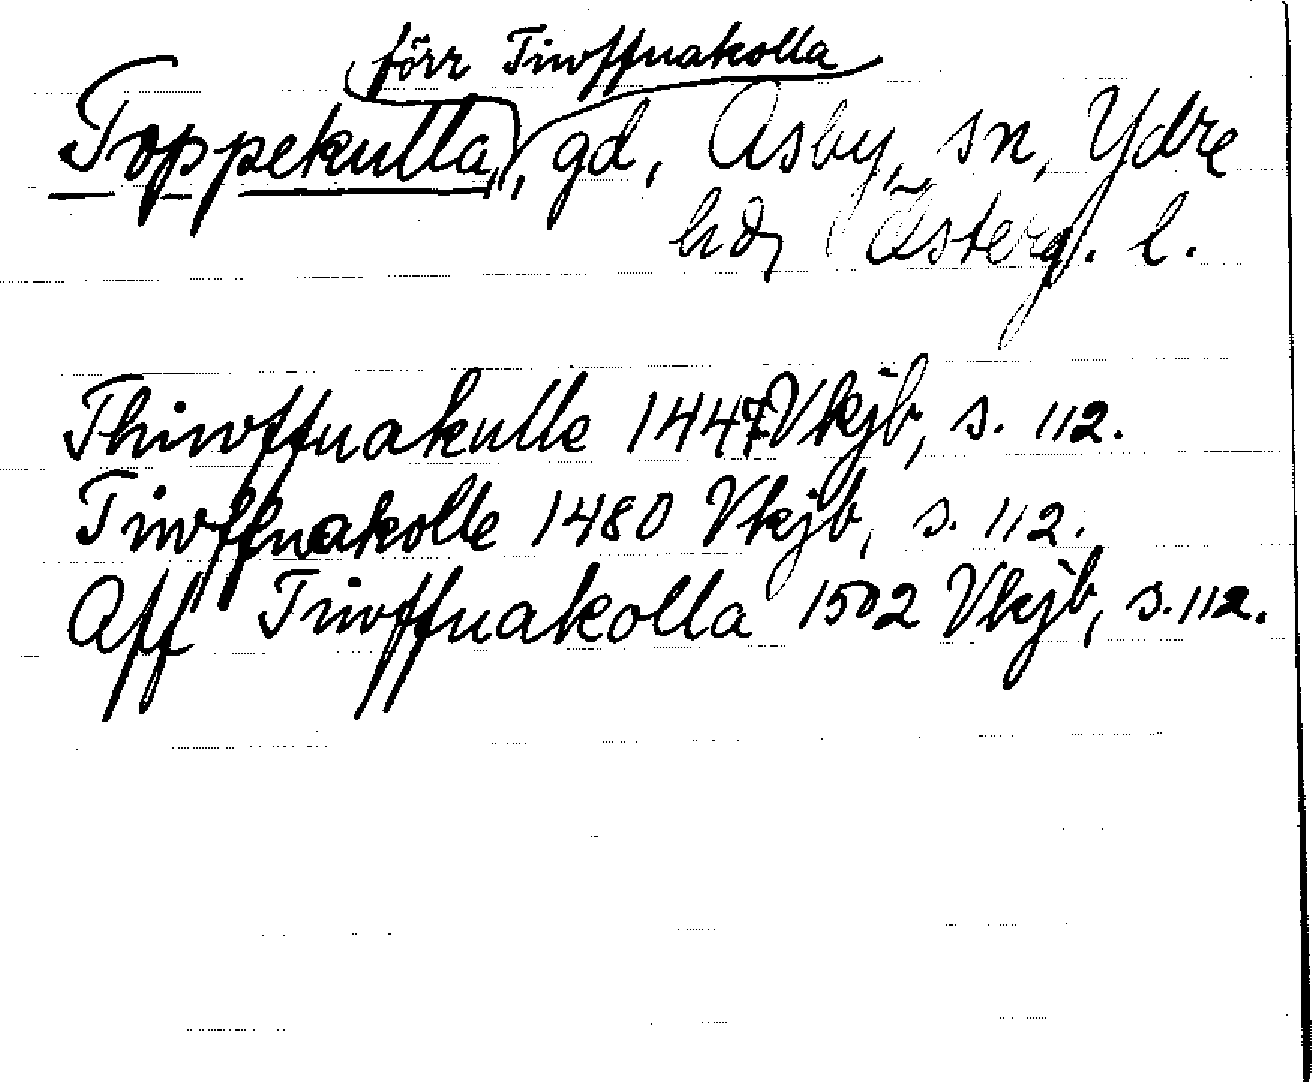 förr Tiwffnakolla
Toppekulla, gd, Asby, sn, Ydre
hd, Österg. l.
Thiwffnakulle 1447 Vkjb, s. 112.
Tiwffnakolle 1480 Vkjb, s. 112.
Aff Tiwffnakolla 1502 Vkjb, s. 112.